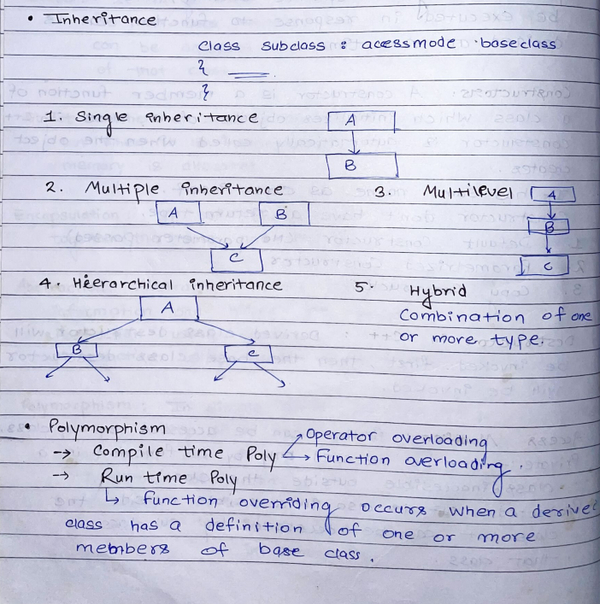 • Inheritance
class subclass : accessmode baseclass
{
}
1. Single inheritance
A
B
2. Multiple inheritance
A B
C
3. Multilevel
A
B
C
4. Hierarchical inheritance
A
B C
5. Hybrid
Combination of one
or more type.
• Polymorphism
→ Compile time Poly → Operator overloading
→ Function overloading
→ Run time Poly
↳ Function overriding occurs when a derived
class has a definition of one or more
members of base class.